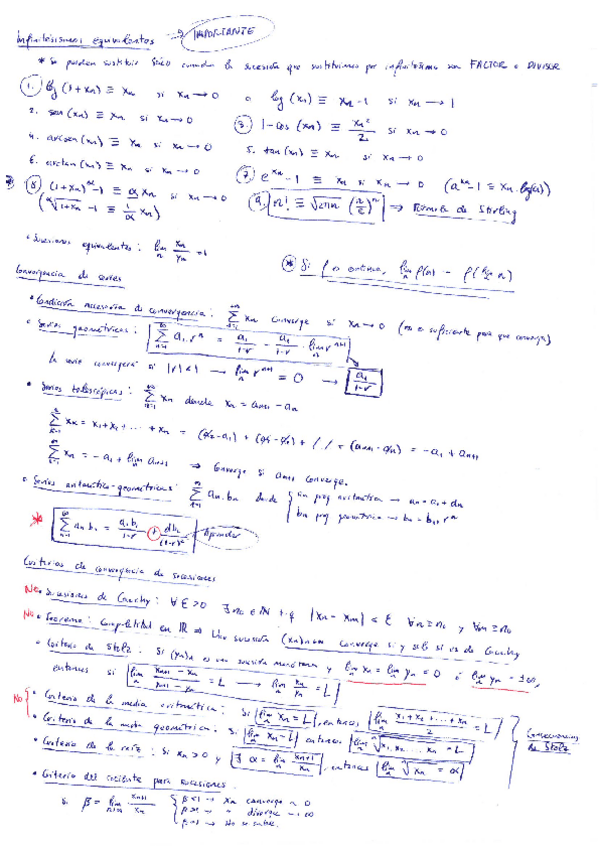 infinitésimos equivalentes → IMPORTANTE
* Se pueden sustituir sólo cuando la sucesión que sustituimos por infinitésimo sea FACTOR o DIVISOR
1. log (1+xn) ≡ xn si xn → 0 o log (xn) ≡ xn - 1 si xn → 1
2. sen (xn) ≡ xn si xn → 0 3. 1 - cos (xn) ≡ xn²/2 si xn → 0
4. arcsen (xn) ≡ xn si xn → 0 5. tan (xn) ≡ xn si xn → 0
6. arctan (xn) ≡ xn si xn → 0 7. e^xn - 1 ≡ xn si xn → 0 (a^xn - 1 ≡ xn · log(a))
8. (1+xn)^α - 1 ≡ α xn si xn → 0 9. n! ≡ √2πn (n/e)^n → Fórmula de Stirling
(α√1+xn - 1 ≡ 1/α xn)
• Sucesiones equivalentes: lim n xn/yn = 1
* Si f es continua, lim n f(n) = f(lim n n)
Convergencia de series
• Condición necesaria de convergencia: ∞ Σ n=1 xn converge si xn → 0 (no es suficiente para que converja)
• Series geométricas: ∞ Σ n=1 a1 · r^n = a1/1-r - a1/1-r · lim n r^n+1
la serie convergerá si |r| < 1 → lim n r^n+1 = 0 → a1/1-r
• Series telescópicas: ∞ Σ n=1 xn donde xn = an+1 - an
Σ xk = x1 + x2 + ... + xn = (a2 - a1) + + (an+1 - an) = -a1 + an+1
∞ Σ xn = -a1 + lim n an+1 → Converge si an+1 converge.
• Series aritmético-geométricas: ∞ Σ n=1 an · bn donde { an prog aritmética → an = a1 + dn
bn prog geométrica →
* ∞ Σ n=1 an bn = a1 b1/1-r + db1/(1-r)² Aprender
Criterios de convergencia de sucesiones
No • Sucesiones de Cauchy: ∀ε>0 ∃ n0 ∈ ℕ t.q |xn - xm| ≤ ε ∀n ≥ n0 y ∀m ≥ n0
No • Teorema: Completitud en ℝ ⇒ Una sucesión (xn) converge si y sólo si es de Cauchy
• Criterio de Stolz: Si (yn)n es una sucesión monótona y lim n xn = lim n yn = 0 ó lim n yn = ±∞,
entonces si lim n xn+1 - xn/yn+1 - yn = L → lim n xn/yn = L
No • Criterio de la media aritmética: Si lim n xn = L, entonces lim n x1 + x2 + ... + xn/ = L
• Criterio de la media geométrica: Si lim n xn = L entonces lim n n√x1, x2, ... xn = L
Consecuencias de Stolz
• Criterio de la raíz: Si xn > 0 y ∃ α = lim n xn+1/xn, entonces lim n n√xn = α
• Criterio del cociente para sucesiones:
Si β = lim n→∞ xn+1/xn { β<1 → xn converge a 0
β>1 → " diverge → ∞
β=1 →